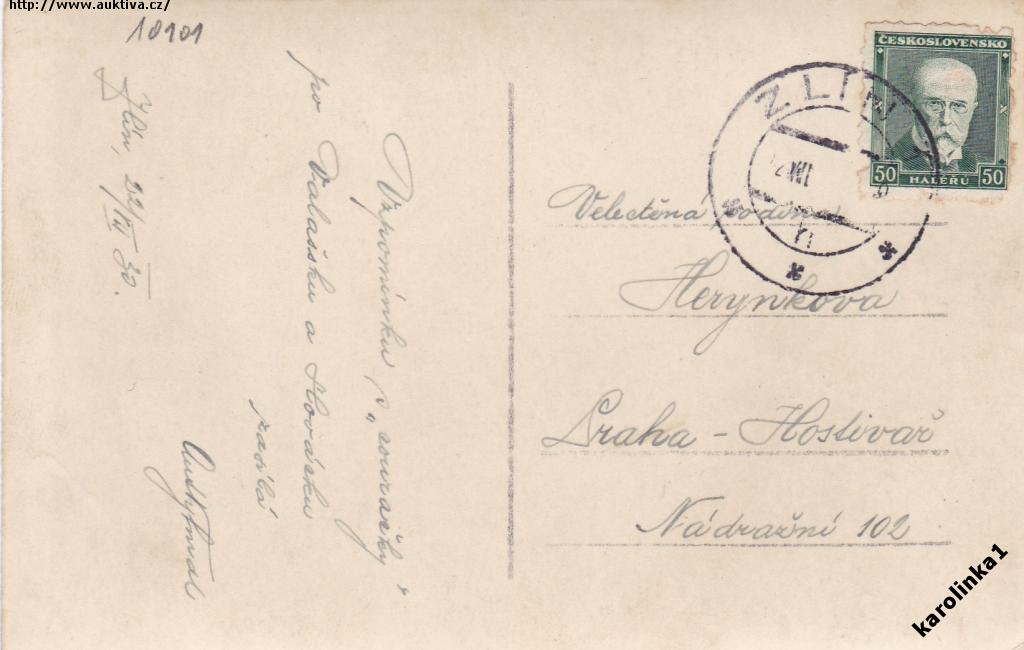 http://www.auktiva.cz/
10901
Zlín, 22/VII 30.
Vzpomínku s „couračky“
pro Valašsku a Slovácku
zasílá
ČESKOSLOVENSKO
50 HALÉŘŮ 50
ZLÍN
Velectěná rodina
Herynkova
Praha - Hostivař
Nádražní 102
karolinka1